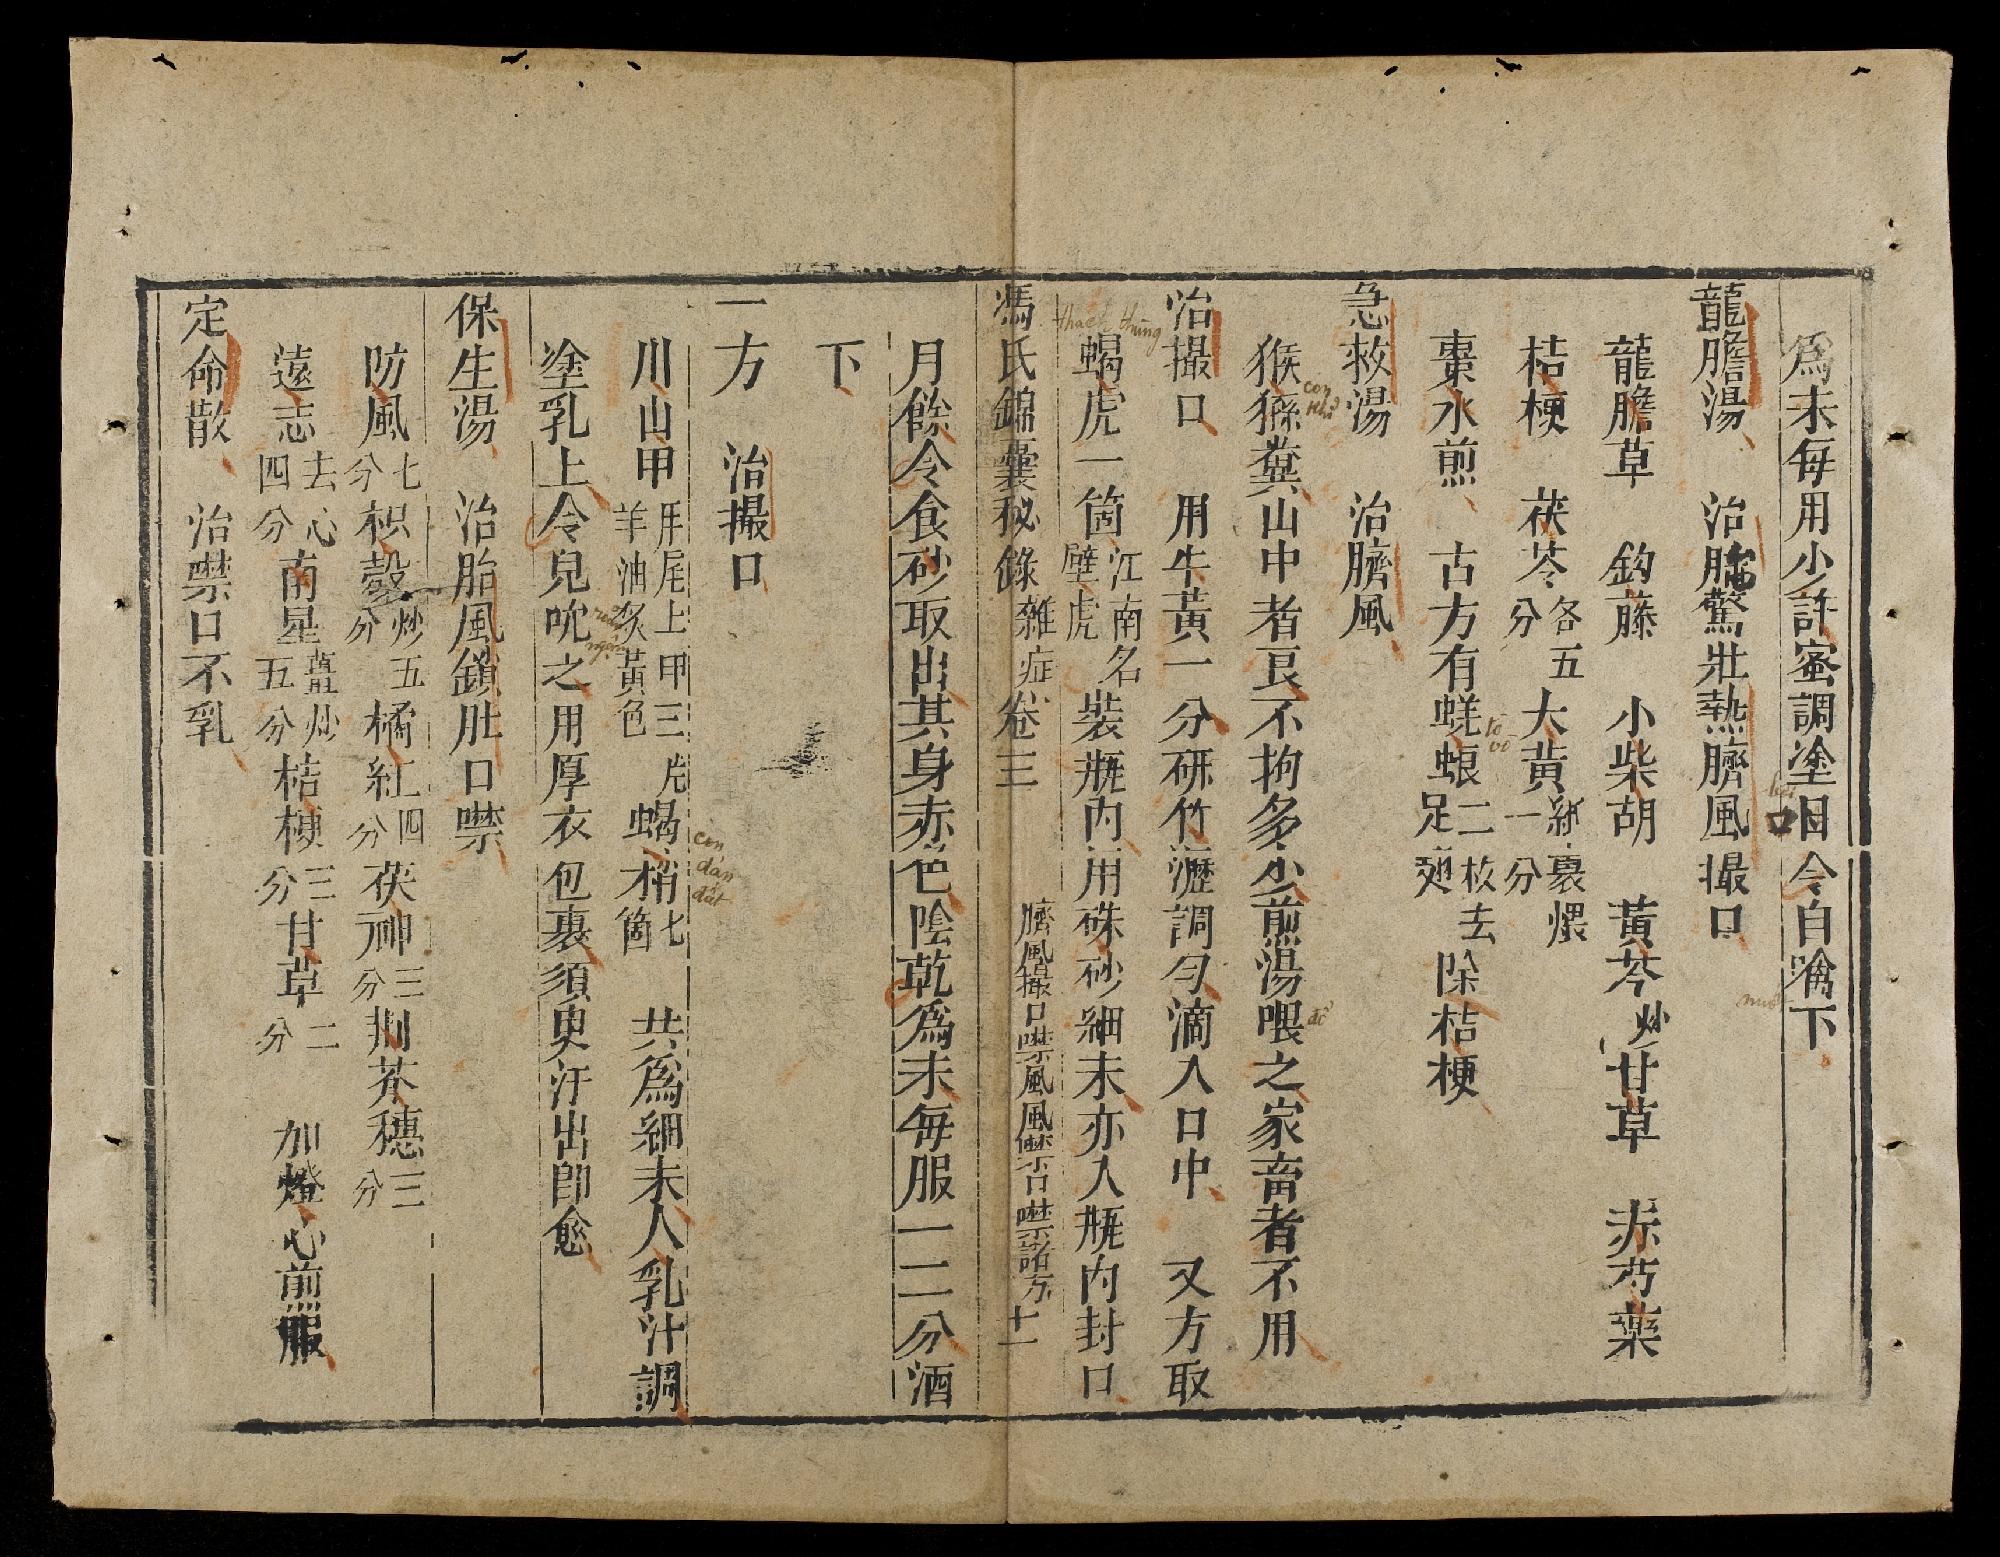 爲末每用小許蜜調塗口令自噙下
龍膽湯　治胎驚壯熱臍風撮口
龍膽草　鈎藤　小柴胡　黃芩炒甘草　赤芍藥
桔梗　茯苓各五分大黃紙裹煨一分
棗水煎　古方有蜣蜋二枚去足翅除桔梗
急救湯　治臍風
猴猻糞山中者良不拘多少煎湯喂之家畜者不用
治撮口　用牛黃一分研竹瀝調勻滴入口中　又方取
蝎虎一箇江南名壁虎裝瓶內用硃砂細末亦入瓶內封口
馮氏錦囊秘錄雜症卷三　臍風撮口噤風風噤口噤諸方　十一
月餘令食砂取出其身赤色陰乾爲末每服一二分酒
下
一方　治撮口
川山甲用尾上甲三片羊油炙黃色蝎梢七箇　共爲細末人乳汁調
塗乳上令兒吮之用厚衣包裹須臾汗出卽愈
保生湯　治臍風鎖肚口噤
防風七分枳殼炒五分橘紅四分茯神三分荆芥穗三分
遠志去心四分南星薑炒五分桔梗三分甘草二分　加燈心煎服
定命散　治噤口不乳
thạch thùng
con khỉ
tò vò
đổ
con dán đất